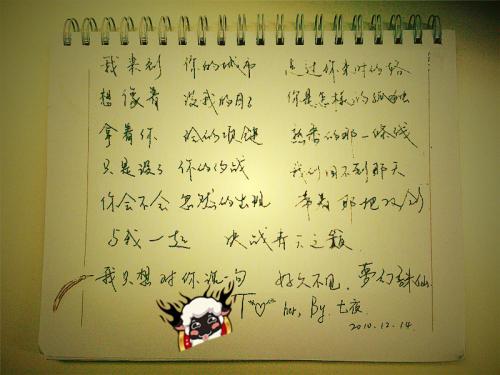 我来到 你的城市 走过你来时的路
想像着 没我的日子 你是怎样的孤独
拿着你 给的项链 熟悉的那一条线
只是没了 你的约战 我们回不到那天
你会不会 忽然的出现 带着 那把
与我一起 决战青云之巅
我只想对你说一句 好久不见,梦幻诛仙
By. 七夜
2010.12.14